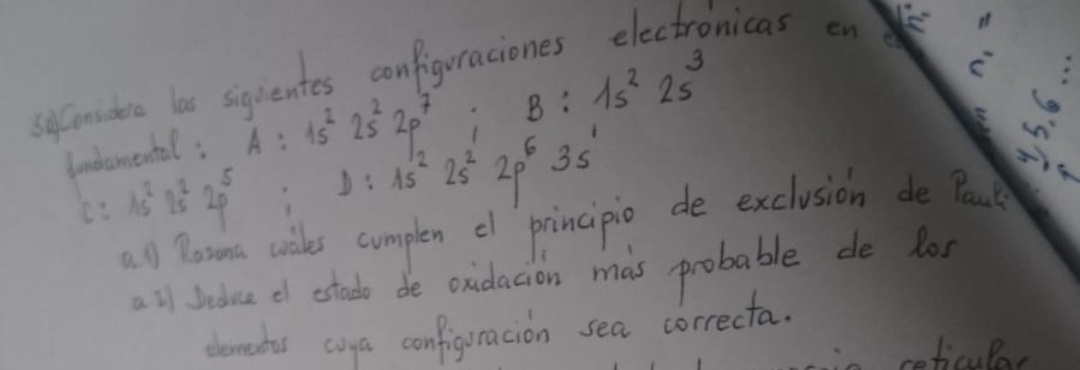 5a) Considera las siguientes configuraciones electrónicas en
fundamental : A : 1s² 2s² 2p⁷ ; B : 1s² 2s³
C : 1s² 2s² 2p⁵ ; D : 1s² 2s² 2p⁶ 3s¹
a.1) Razona cuáles cumplen el principio de exclusión de Pauli
a.2) Deduce el estado de oxidación más probable de los
elementos cuya configuración sea correcta.
reticular
4, 5, 6 ...